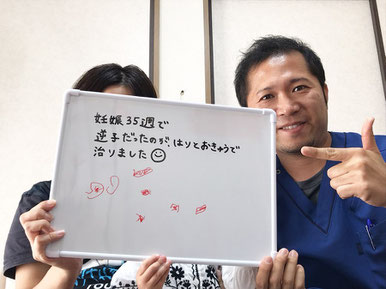 妊娠35週で
逆子だったのが、はりとおきゅうで
治りました